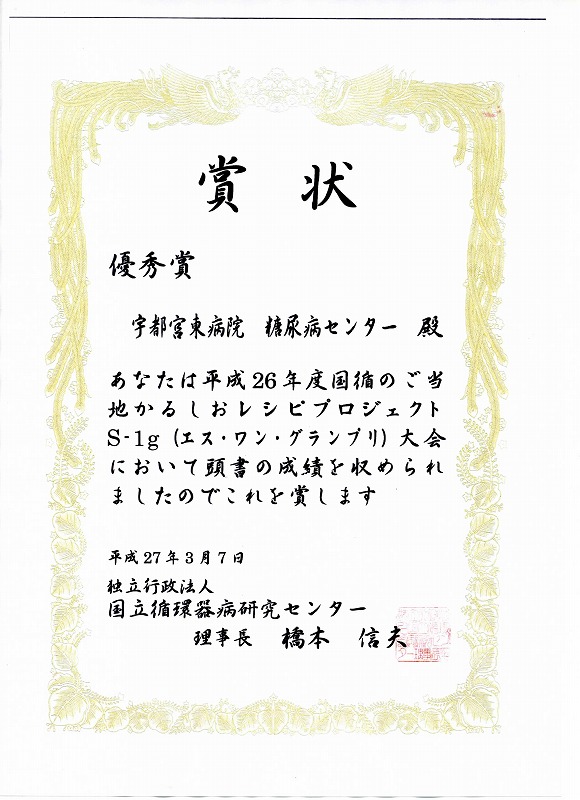 賞 状
優秀賞
宇都宮東病院 糖尿病センター 殿
あなたは平成26年度国循のご当
地かるしおレシピプロジェクト
S-1g（エス・ワン・グランプリ）大会
において頭書の成績を収められ
ましたのでこれを賞します
平成27年3月7日
独立行政法人
国立循環器病研究センター
理事長 橋本 信夫